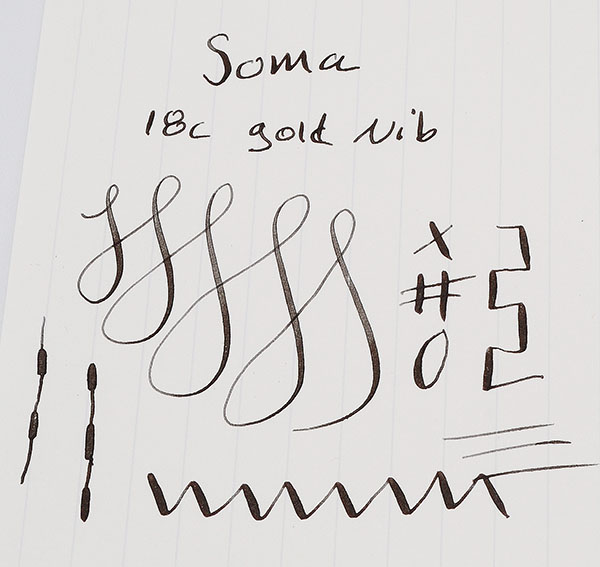 Soma
18c gold Nib
x
#
0